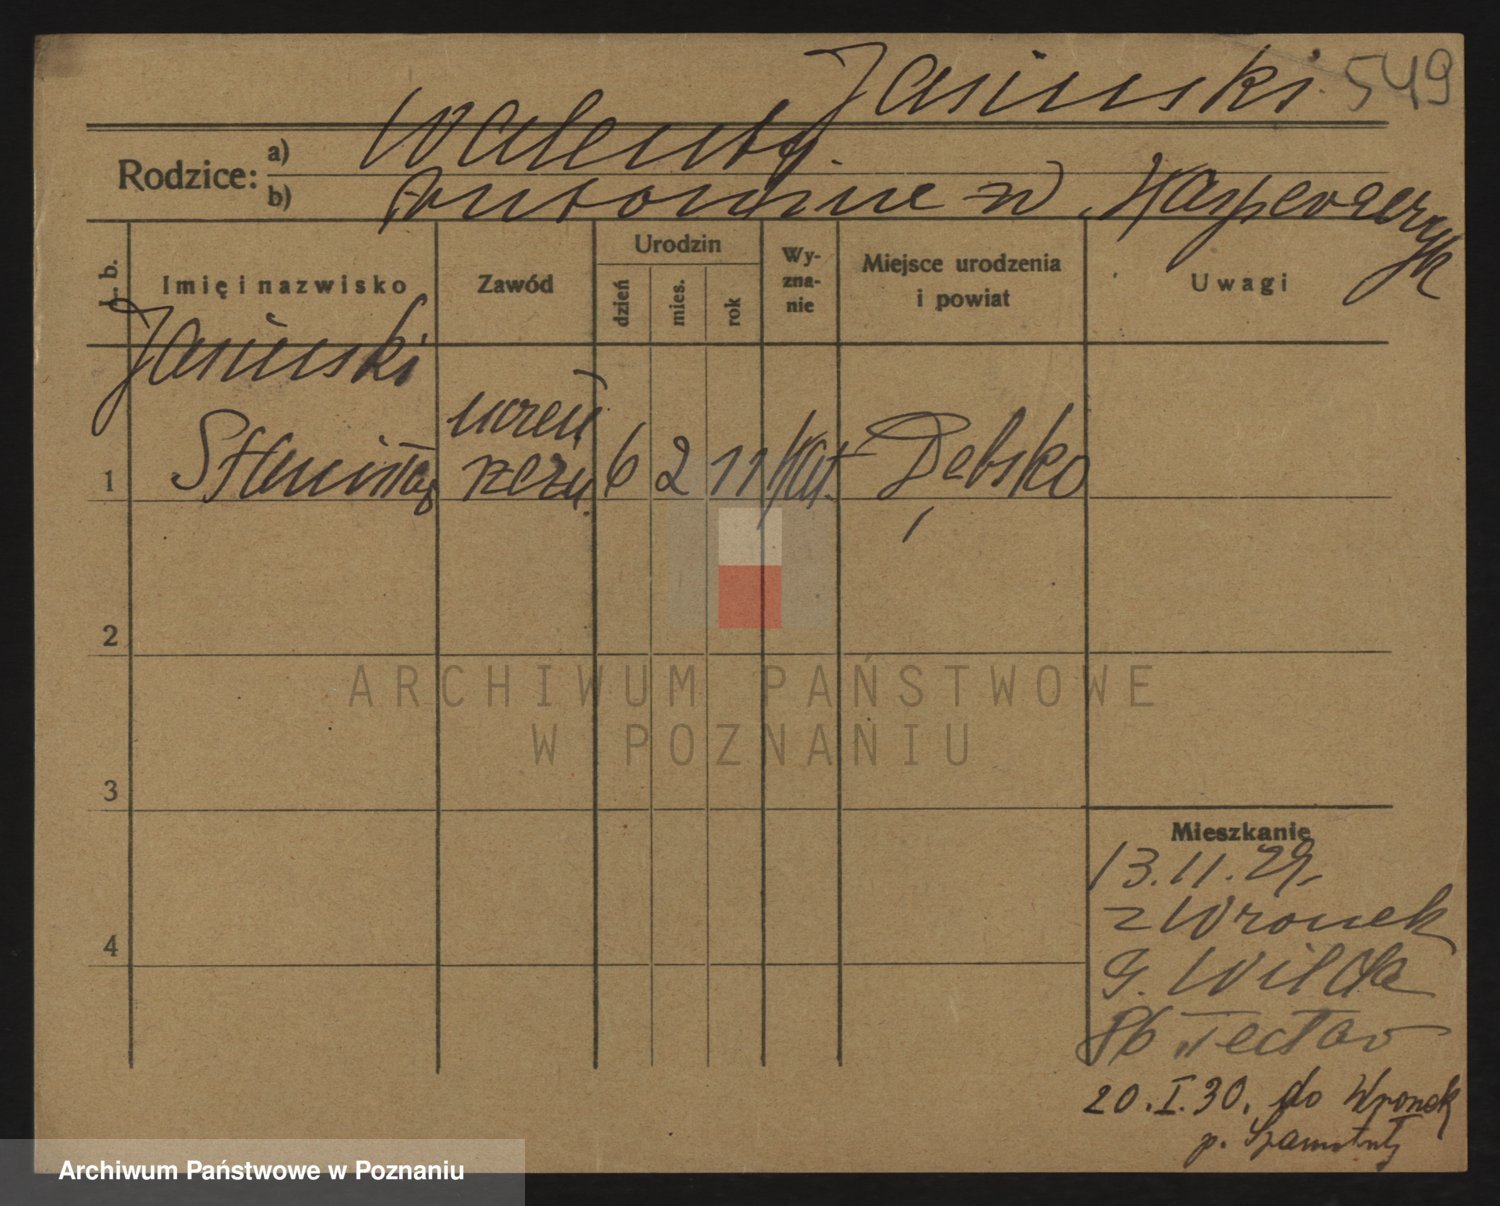 Jasinski 549
Rodzice:
a) Walenty
b) Antonine z d Kasperczyk
L. b.
Imię i nazwisko
Zawód
Urodzin
dzień
mies.
rok
Wy-
zna-
nie
Miejsce urodzenia
i powiat
Uwagi
Jasinski
uczeń
1 Stanisław rzeźn. 6 2 11 kat. Dębsko
2
3
4
ARCHIWUM PAŃSTWOWE
W POZNANIU
Mieszkanie
13.11.29.
z Wronek
G. Wilda
86
20.I.30. do Wronek
p. Szamotuły
Archiwum Państwowe w Poznaniu